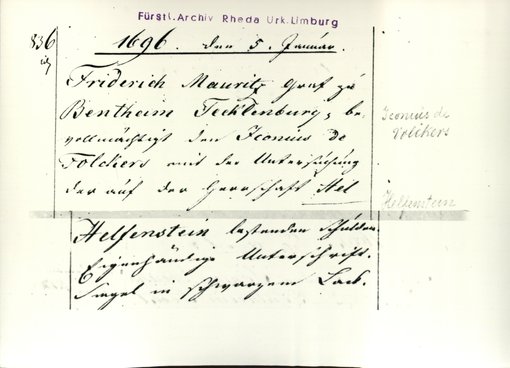 Fürstl. Archiv Rheda Urk. Limburg
836
1696. den 5. Januar.
Friderich Mauritz Graf zu
Bentheim Tecklenburg, be-
vollmächtigt den Iconius de
Folckers mit der Untersuchung
der auf der Herrschaft Hel
Helfenstein lastenden Schulden.
Eigenhändige Unterschrift.
Siegel in schwarzem Lack.
Iconius de
Volckers
Helfenstein